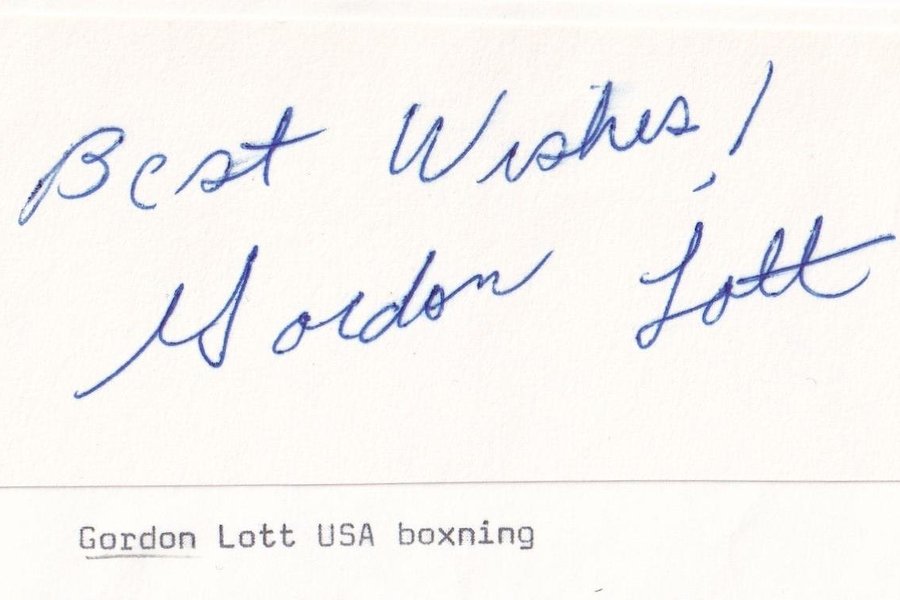 Best Wishes!
Gordon Lott
Gordon Lott USA boxning